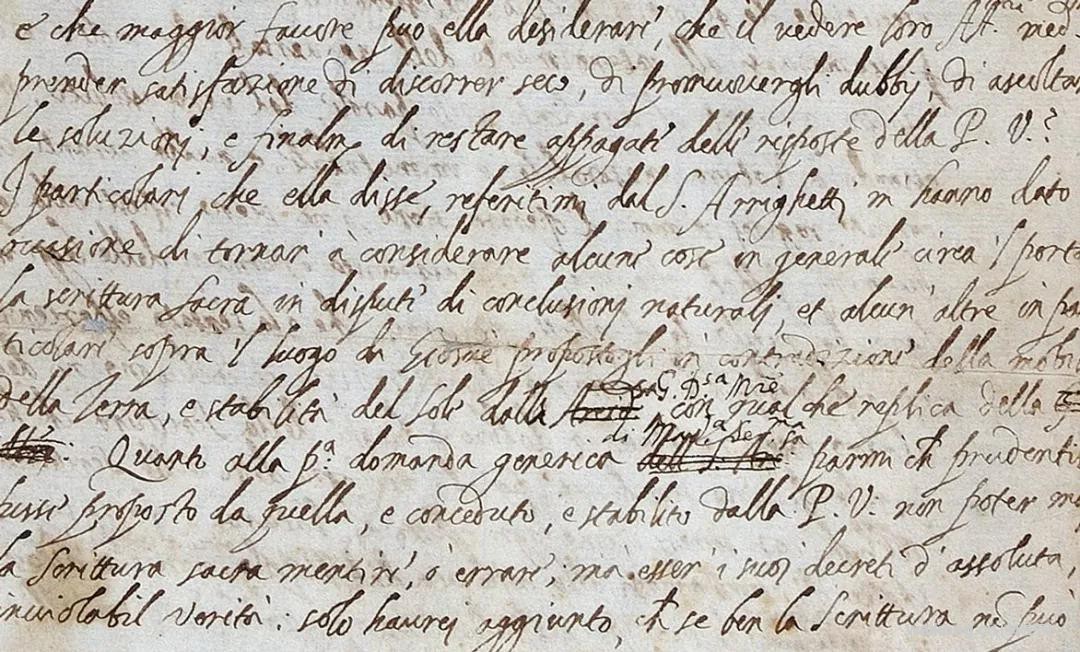 e che maggior favore può ella desiderare, che il vedere loro Alt.
prender satisfazione di discorrer seco, di promuovergli dubbij, di ascoltar
le soluzioni, e finalm. di restare appagate delle risposte della P. V.?
I particolari che ella disse, referitimi dal S. Arrighetti, m hanno dato
occasione di tornar à considerare alcune cose in generale circa 'l portar
la scrittura sacra in dispute di conclusioni naturali, et alcun' altre in par
ticolare sopra 'l luogo di Giosuè propostogli in contradizione della mobil
della Terra, e stabilità del Sole dalla con qualche replica della
Quanto alla p.ª domanda generica parmi ch prudentis
fusse proposto da quella, e conceduto, e stabilito dalla P. V. non poter m
la Scrittura sacra mentire, ò errare; mà esser i suoi decreti d' assoluta,
inviolabil verità: solo haurei aggiunto, ch se ben la Scrittura nõ può